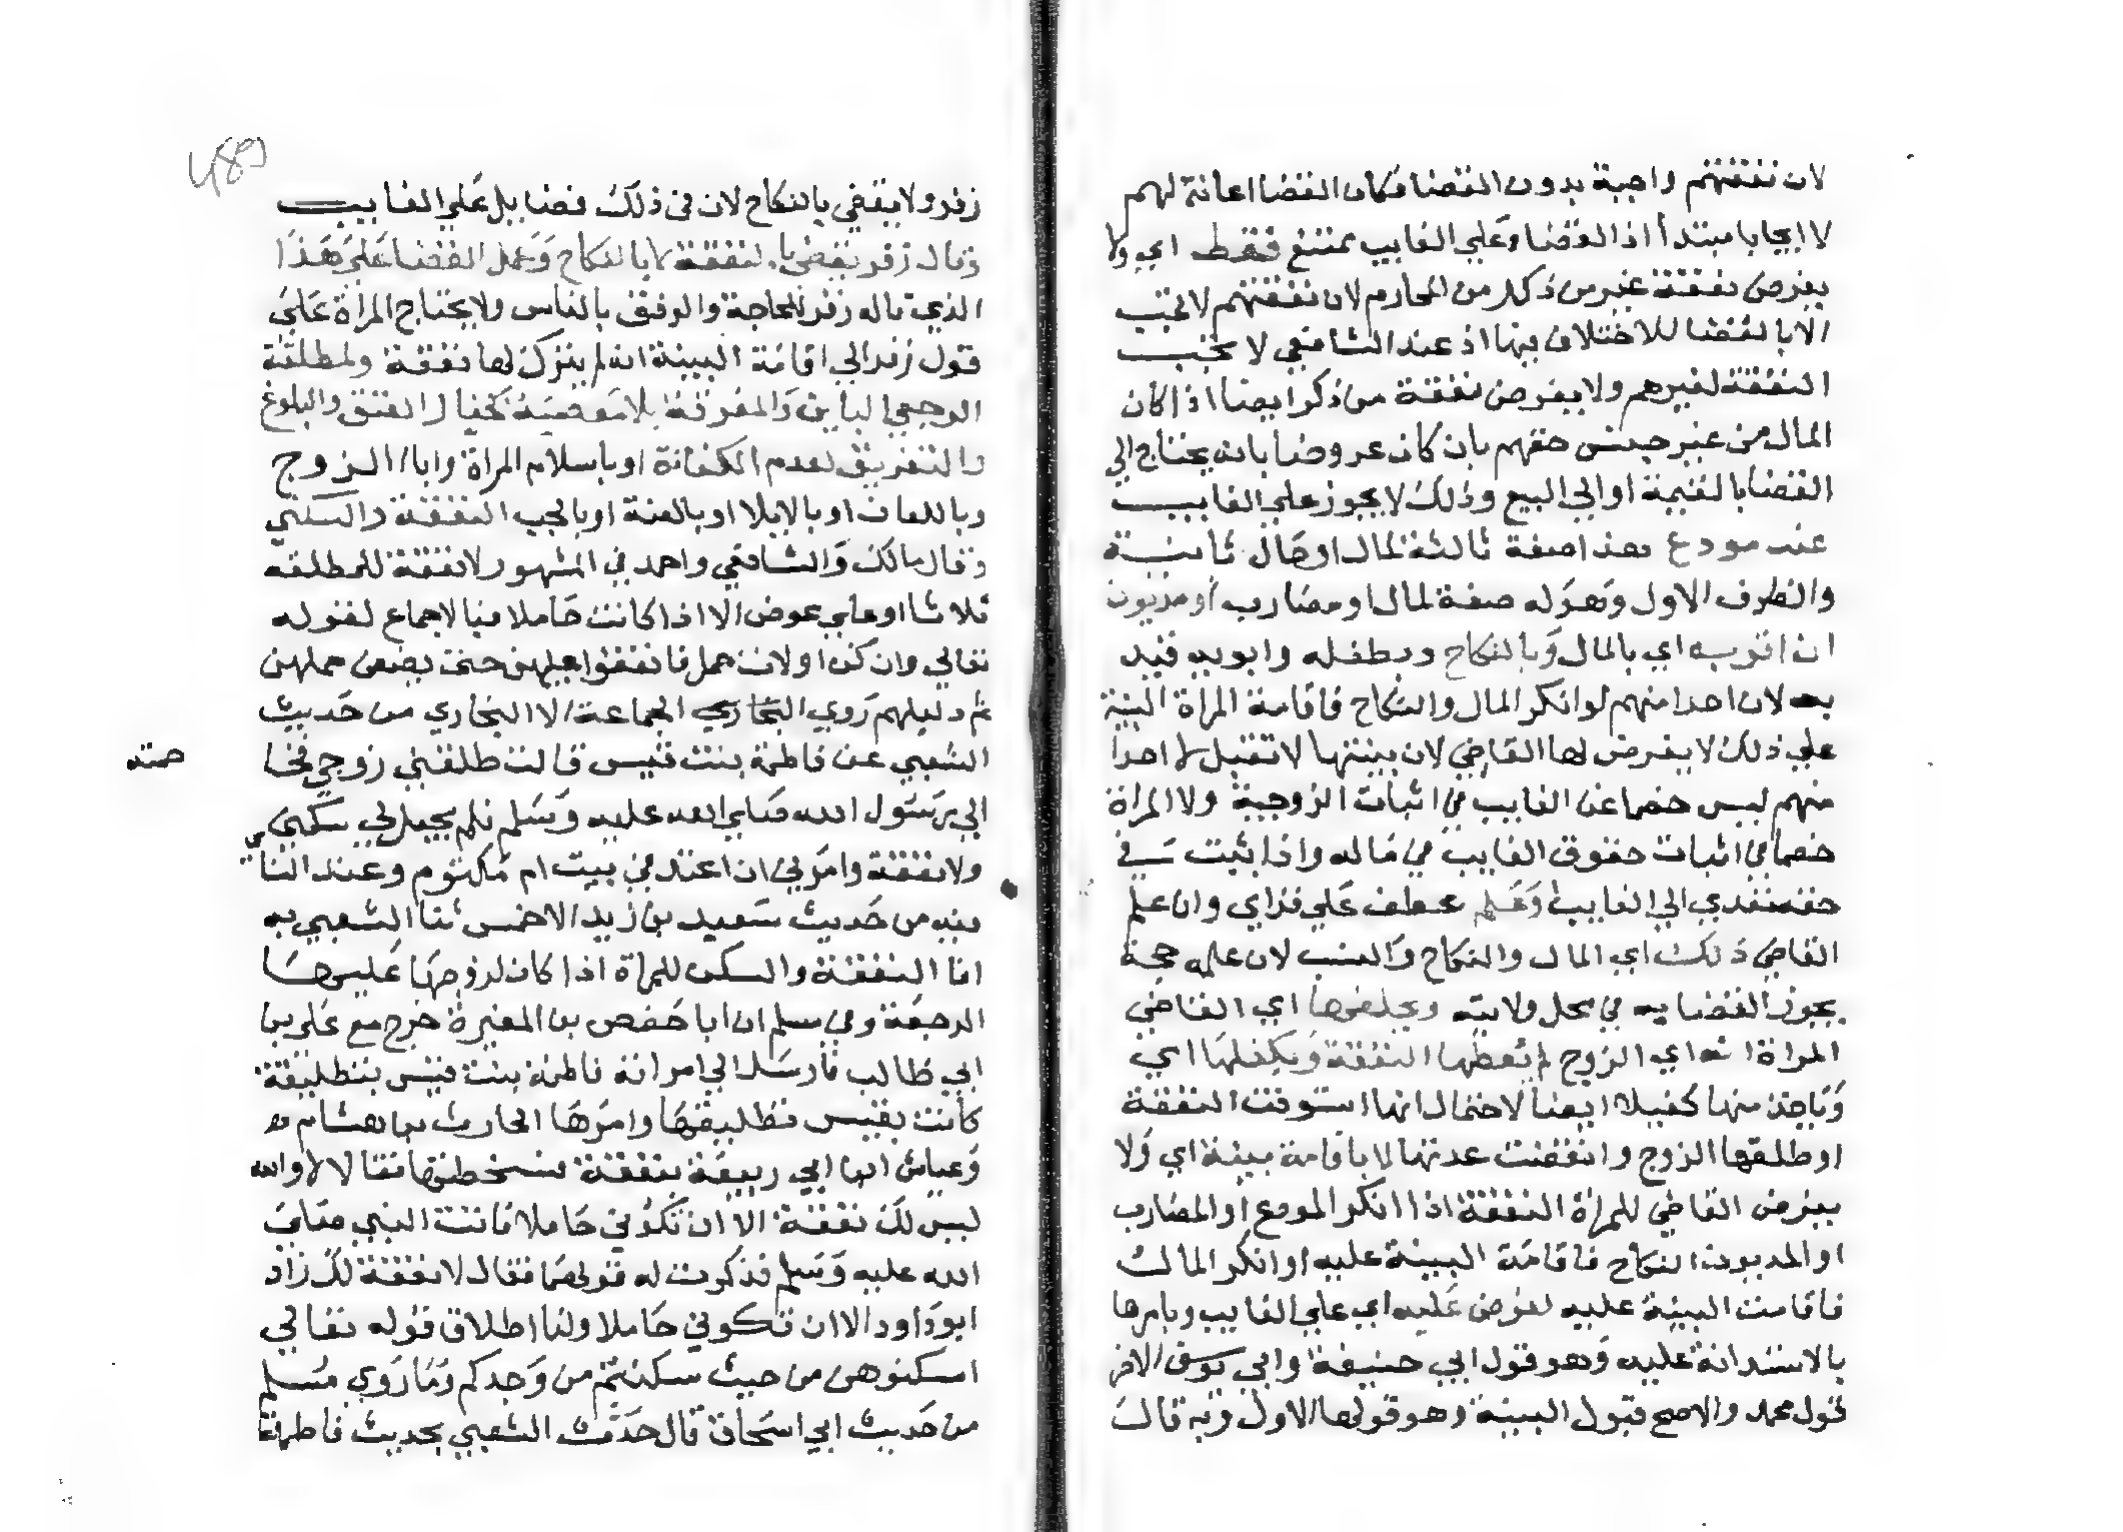 لان نفقتهم واجبة بدون القضا فكان القضا اعانة لهم
لا ايجابا مبتدأ اذ القضا وعلي الغايب ممتنع فقط اي ولا
يفرض نفقة غير من ذكر من المحارم لان نفقتهم لا تجب
الا بالقضا للاختلاف فيها اذ عند الشافعي لا تجب
النفقة لغيرهم ولا يفرض نفقة من ذكر ايضا اذا كان
المال من غير جنس حقهم بان كان عروضا بانه يحتاج الي
القضا بالقيمة او الي البيع وذلك لا يجوز علي الغايب
عند مودع هذا صفة ثالثة لمال او حال ثانية
والظرف الاول وهو له صفة لمال او مضارب او مديون
ان اقر به اي بالمال وبالنكاح وبطفله وابويه قيد
به لان احدا منهم لو انكر المال والنكاح فاقامة المراة البينة
علي ذلك لا يفرض لها القاضي لان بينتها لا تقبل لا احدا
منهم ليس خصما عن الغايب في اثبات الزوجية ولا المراة
خصما في اثبات حقوق الغايب في ماله واذا ثبت في
حقه تعدي الي الغايب وعلم عطف علي قراي وان علم
القاضي ذلك اي المال والنكاح والنسب لان علمه حجة
يجوز القضا به في محل ولايته ويحلفها اي القاضي
المراة انه اي الزوج لم يعطها النفقة ويكفلها اي
وياخذ منها كفيلا ايضا لاحتمال انها استوفت النفقة
او طلقها الزوج وانقضت عدتها لا باقامة بينة اي ولا
يفرض القاضي للمراة النفقة اذا انكر المودع او المضارب
او المديون النكاح فاقامة البينة عليه او انكر المالك
فاقامت البينة عليه لفرض عليه اي علي الغايب ويامرها
بالاستدانة عليه وهو قول ابي حنيفة وابي يوسف الاخر
قول محمد والاصح قبول البينة وهو قولها الاول وبه قال
زفر ولا يقضي بالنكاح لان في ذلك قضا بل علي الغايب
وقال زفر يقضي بالنفقة لا بالنكاح وعمل القضا علي هذا
الذي قاله زفر للحاجة والرفق بالناس ولا يحتاج المراة علي
قول زفر الي اقامة البينة انه لم يترك لها نفقة ولمطلقة
الرجعي البابن والمفرقة بلا معصية كخيار العتق والبلوغ
والتفريق لعدم الكفاءة او باسلام المراة وابا الزوج
وباللعان او بالايلا او بالعنة او بالجب النفقة والسكني
وقال مالك والشافعي واحمد في المشهور لا نفقة للمطلقه
ثلاثا او علي عوض الا اذا كانت حاملا فبالاجماع لقوله
تعالي وان كن اولات حمل فانفقوا عليهن حتي يضعن حملهن
ثم دليلهم روي البخاري الجماعة الا البخاري من حديث
الشعبي عن فاطمة بنت قيس قالت طلقني زوجي فخا
صمته
الي رسول الله صلي الله عليه وسلم فلم يجعل لي سكني
ولا نفقة وامرني ان اعتد في بيت ام مكتوم وعند النسا
فيه من حديث سعيد بن زيد الاخمس ثنا الشعبي به
انما النفقة والسكن للمراة اذا كان لزوجها عليها
الرجعة وفي مسلم ان ابا حفص بن المغيرة خرج مع علي بن
ابي طالب فارسل الي امراته فاطمة بنت قيس بتطليقة
كانت بقيت من تطليقها وامرها الحارث بن هشام
وعياش ابن ابي ربيعة بنفقة فسخطتها فقالا لا والله
ليس لك نفقة الا ان تكوني حاملا فاتت النبي صلي
الله عليه وسلم فذكرت له قولهما فقال لا نفقة لك زاد
ابوداود الا ان تكوني حاملا ولنا اطلاق قوله تعالي
اسكنوهن من حيث سكنتم من وجدكم وما روي مسلم
من حديث ابي اسحاق قال حدث الشعبي بحديث فاطمة